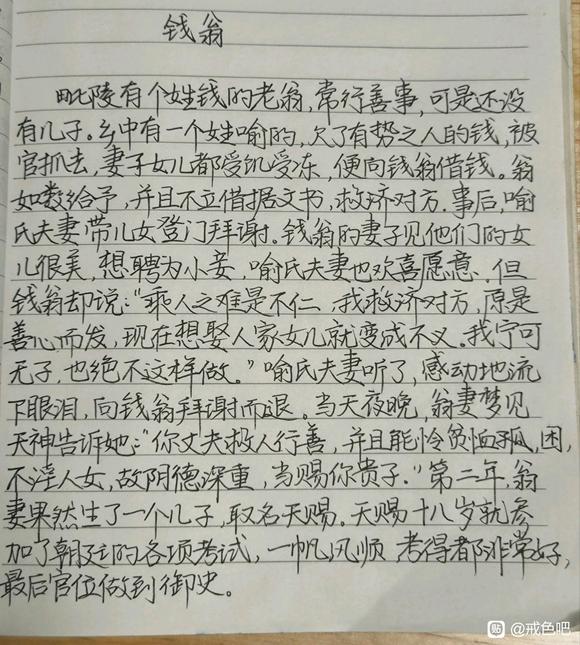 钱翁
毗陵有个姓钱的老翁,常行善事,可是还没
有儿子。乡中有一个姓喻的,欠了有势之人的钱,被
官抓去,妻子女儿都受饥受冻,便向钱翁借钱。翁
如数给予,并且不立借据文书,救济对方.事后,喻
氏夫妻带儿女登门拜谢.钱翁的妻子见他们的女
儿很美,想聘为小妾,喻氏夫妻也欢喜愿意.但
钱翁却说:“乘人之难是不仁,我救济对方,原是
善心而发,现在想娶人家女儿就变成不义.我宁可
无子,也绝不这样做。”喻氏夫妻听了,感动地流
下眼泪,向钱翁拜谢而退.当天夜晚,翁妻梦见
天神告诉她:“你丈夫救人行善,并且能怜贫恤孤,困,
不淫人女,故阴德深重,当赐你贵子.”第二年,翁
妻果然生了一个儿子,取名天赐.天赐十八岁就参
加了朝廷的各项考试,一帆风顺,考得都非常好,
最后官位做到御史。
贴 @戒色吧